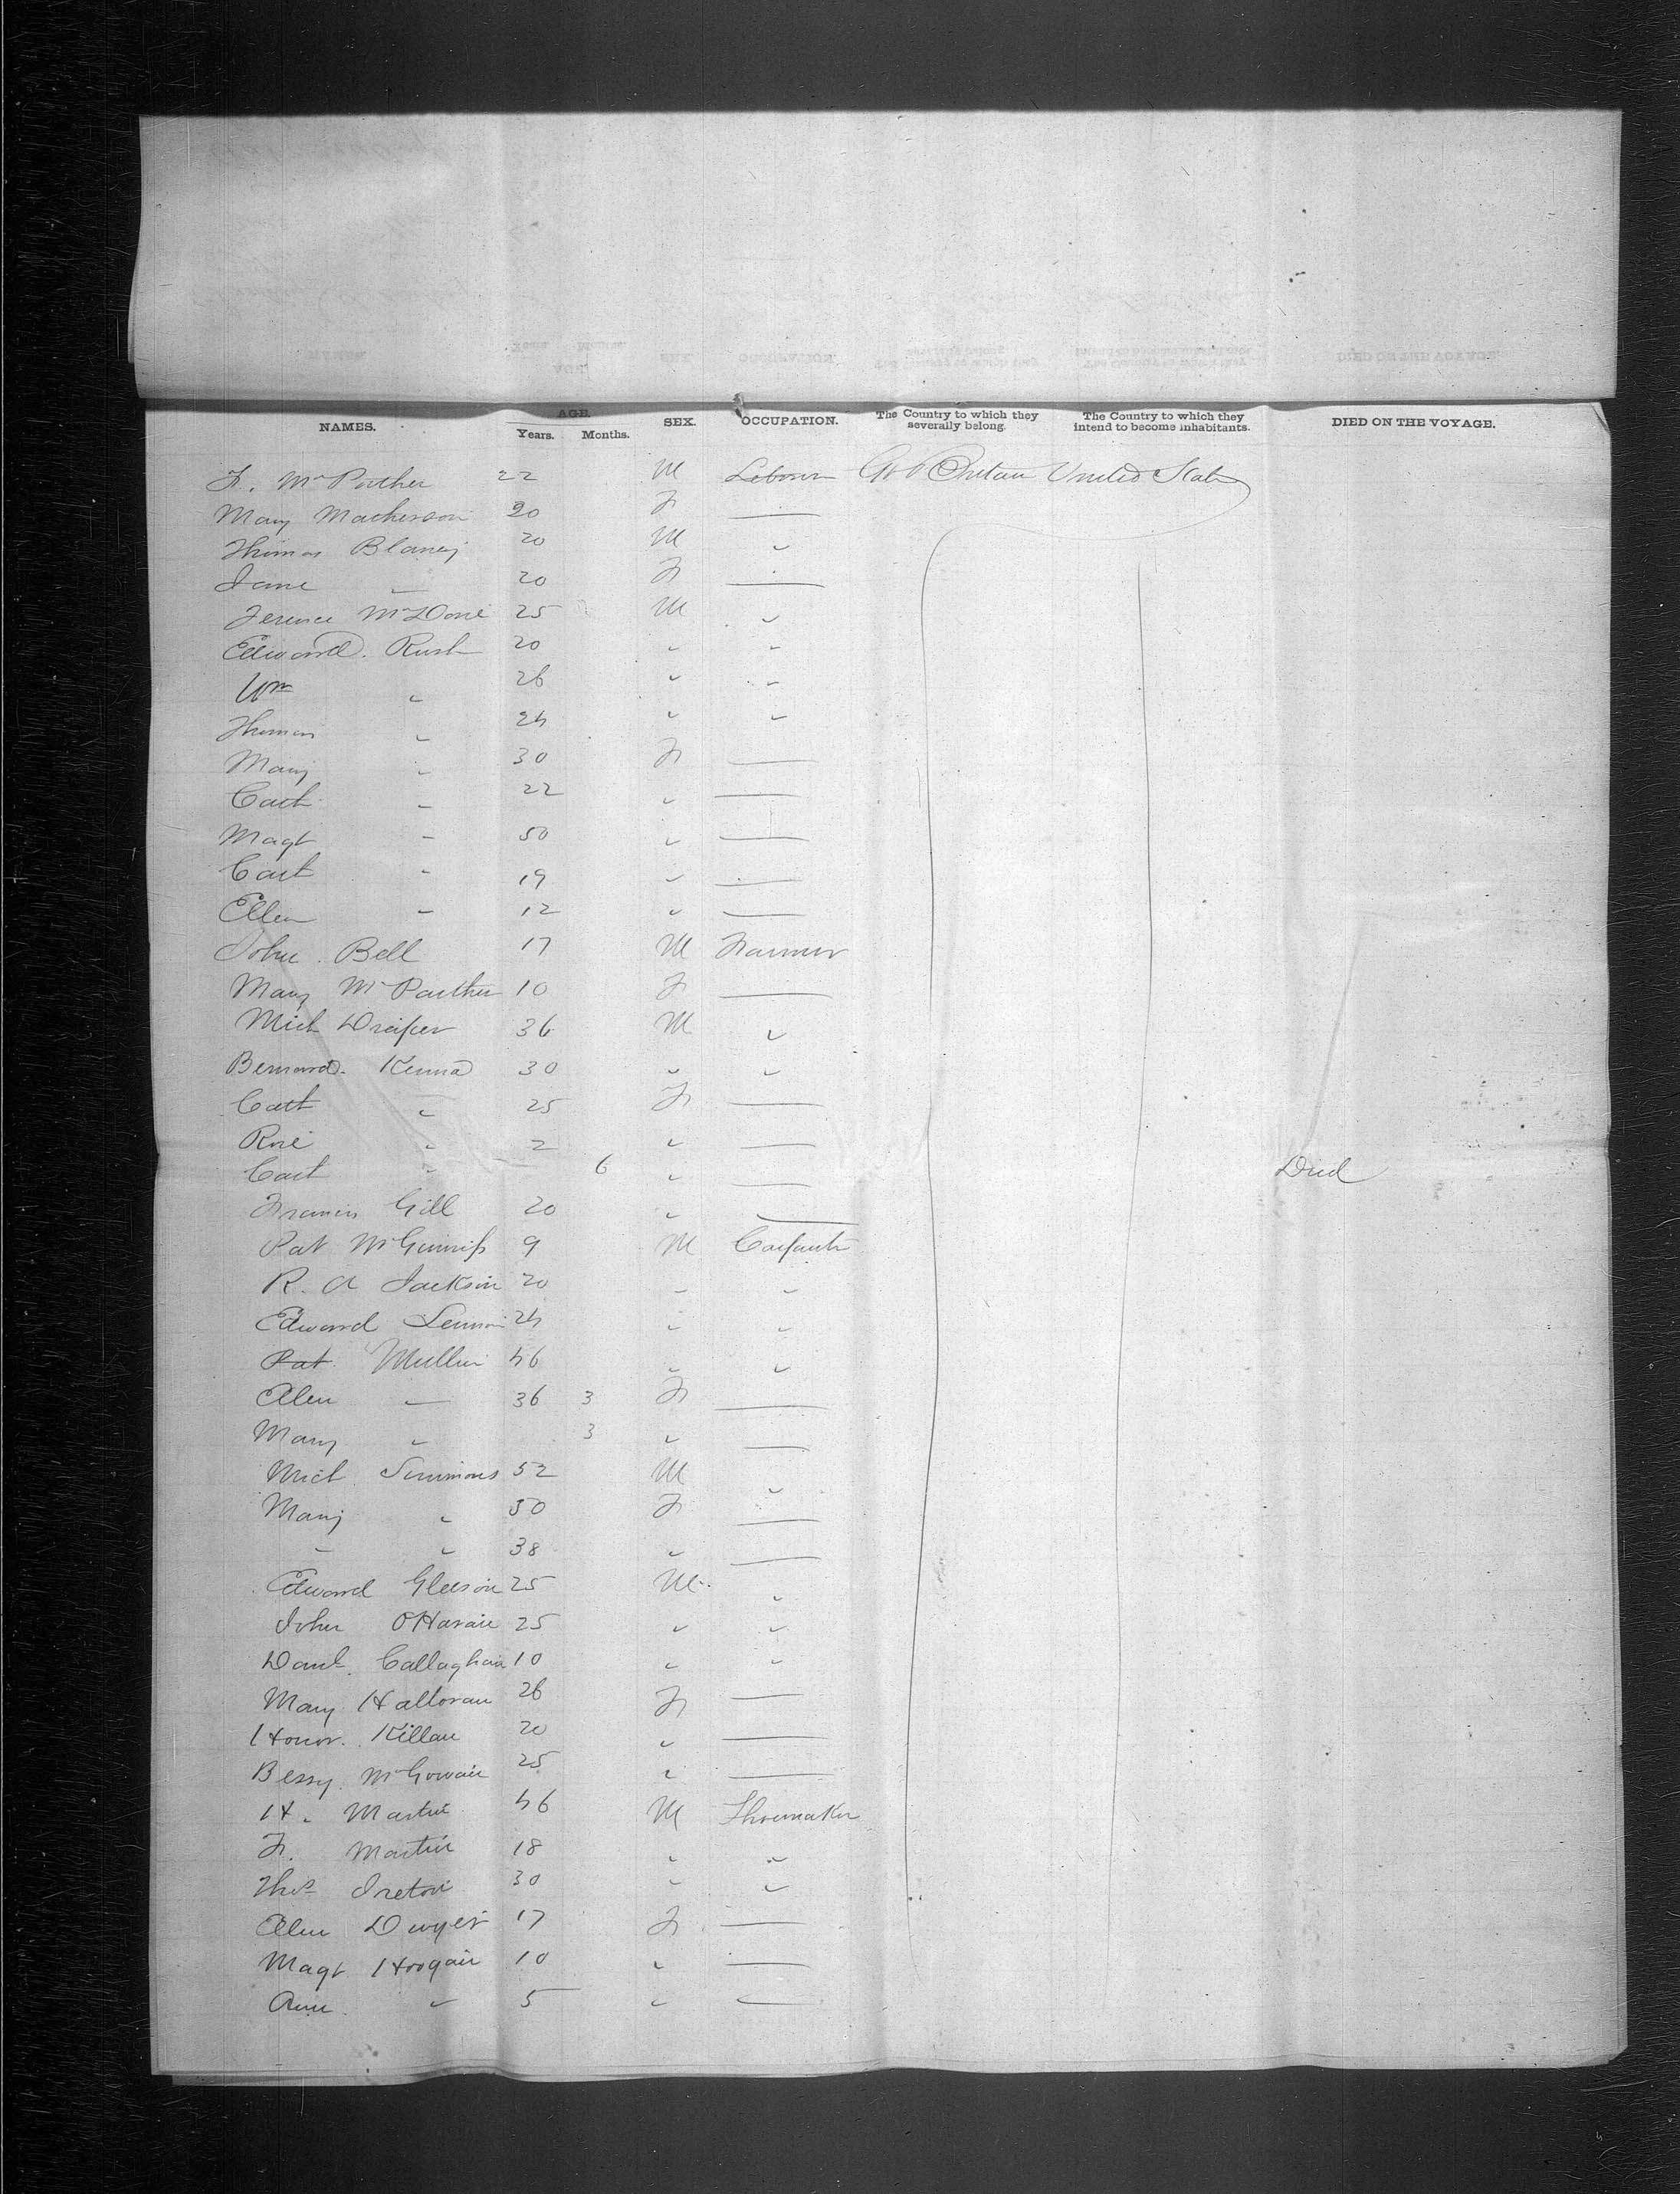 NAMES. AGE. Years. Months. SEX. OCCUPATION. The Country to which they severally belong. The Country to which they intend to become inhabitants. DIED ON THE VOYAGE.
F. McParther 22 M Labour Gt Britain United States
Mary Mackerson 20 F —
Thomas Blaney 20 M "
Jane — 20 F —
Terence 25 M "
Edward Rush 20 " "
Wm " 26 " "
Thomas " 24 " "
Mary " 30 F —
Cath " 22 " —
Magt " 50 " —
Cath " 19 " —
Ellen " 12 " —
John Bell 17 M Farmer
Mary McParther 10 F —
Mich Draper 36 M "
Bernard Kenna 30 " "
Cath " 25 F —
Rose " 2 " —
Cath " 6 " — Died
Frances Gill 20 " —
Pat McGinniss 9 M Carpenter
R. A Jackson 20 " "
Edward Lennon 24 " "
Pat Mullin 46 " "
Allen — 36 3 F —
Mary " 3 " —
Mich Simmons 52 M "
Mary " 50 F —
" " 38 " —
Edward Gleeson 25 M "
John OHaraie 25 " "
Danl. Callaghan 10 " "
Mary Halloran 26 F —
Honor. Killan 20 " —
Bessy McGowan 25 " —
H. Martin 46 M Shoemaker
F. Martin 18 " "
Thos Ireton 30 " "
Allen Dwyer 17 F —
Magt Hoogan 10 " —
Ann " 5 " —